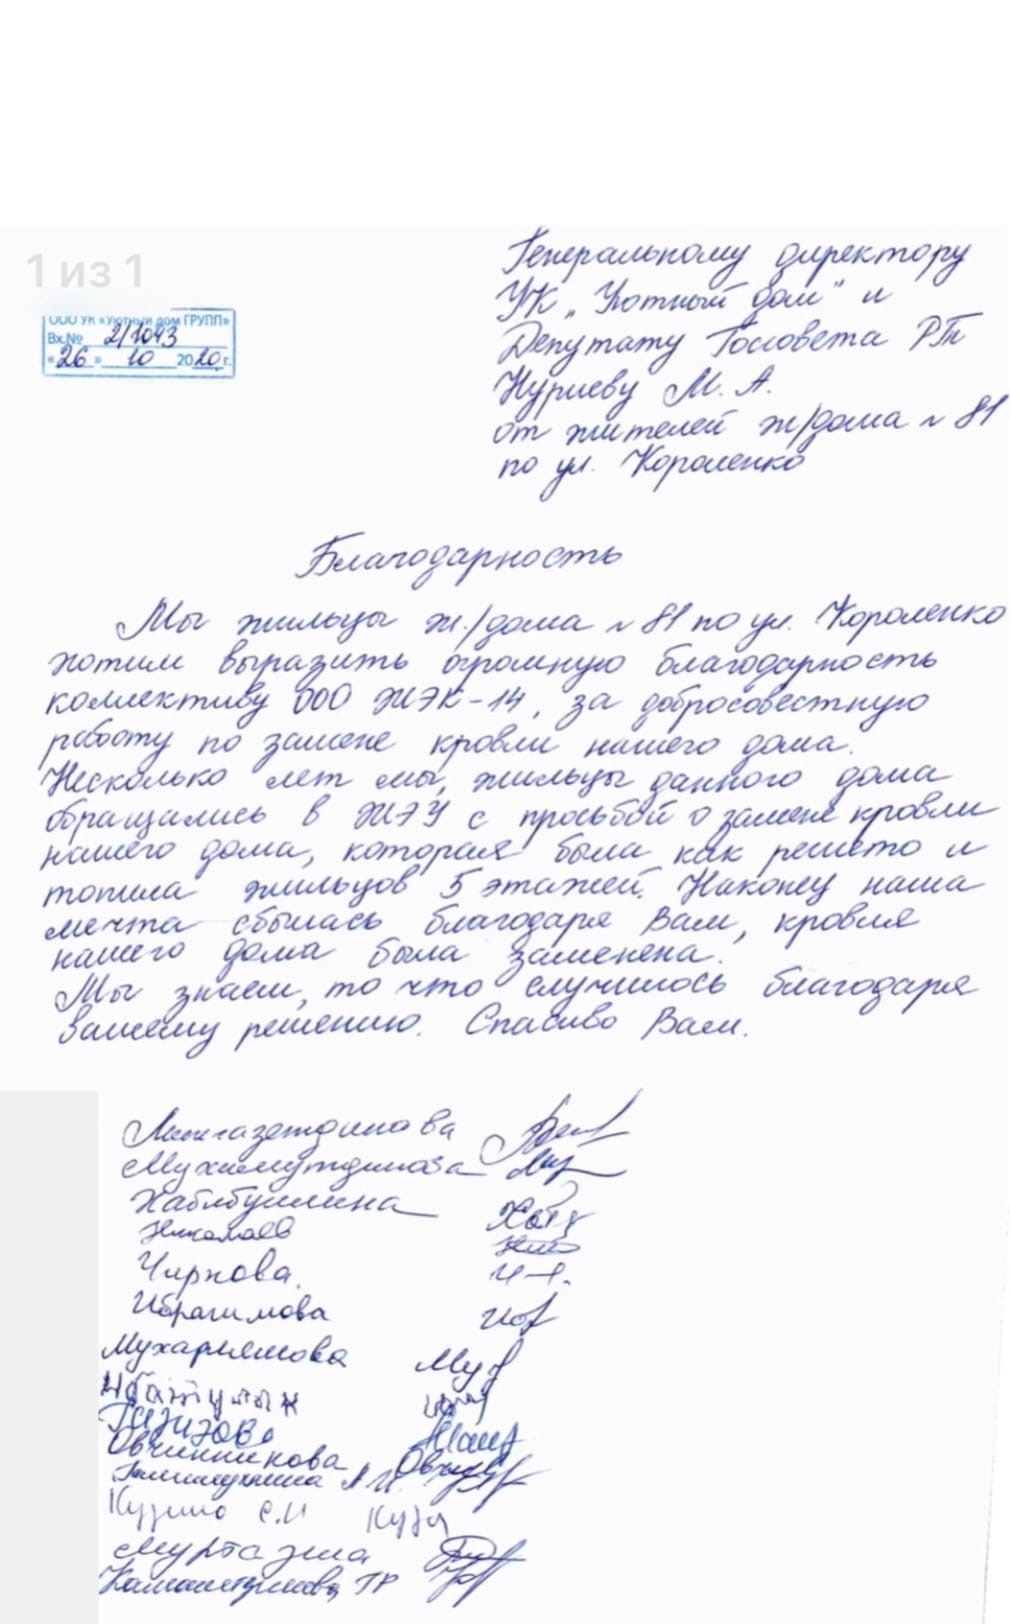 1 из 1
ООО УК «Уютный дом ГРУПП»
Вх.№ 2/1043
«26» 10 2020 г.
Генеральному директору
УК „Уютный дом" и
Депутату Госсовета РТ
Нуриеву М. А.
от жителей ж/дома № 81
по ул. Короленко
Благодарность
Мы жильцы ж./дома № 81 по ул. Короленко
хотим выразить огромную благодарность
коллективу ООО ЖЭК-14, за добросовестную
работу по замене кровли нашего дома.
Несколько лет мы, жильцы данного дома
обращались в ЖЭУ с просьбой о замене кровли
нашего дома, которая была как решето и
топила жильцов 5 этажей. Наконец наша
мечта сбылась благодаря Вам, кровля
нашего дома была заменена.
Мы знаем, то что случилось благодаря
вашему решению. Спасибо Вам.
Мухамутдинова
Хабибуллина
Николаев
Чиркова.
Ибрагимова
Мухарлямова
Ибатуллин
Газизова
Овчинникова
Кузино С.И
Муртазина